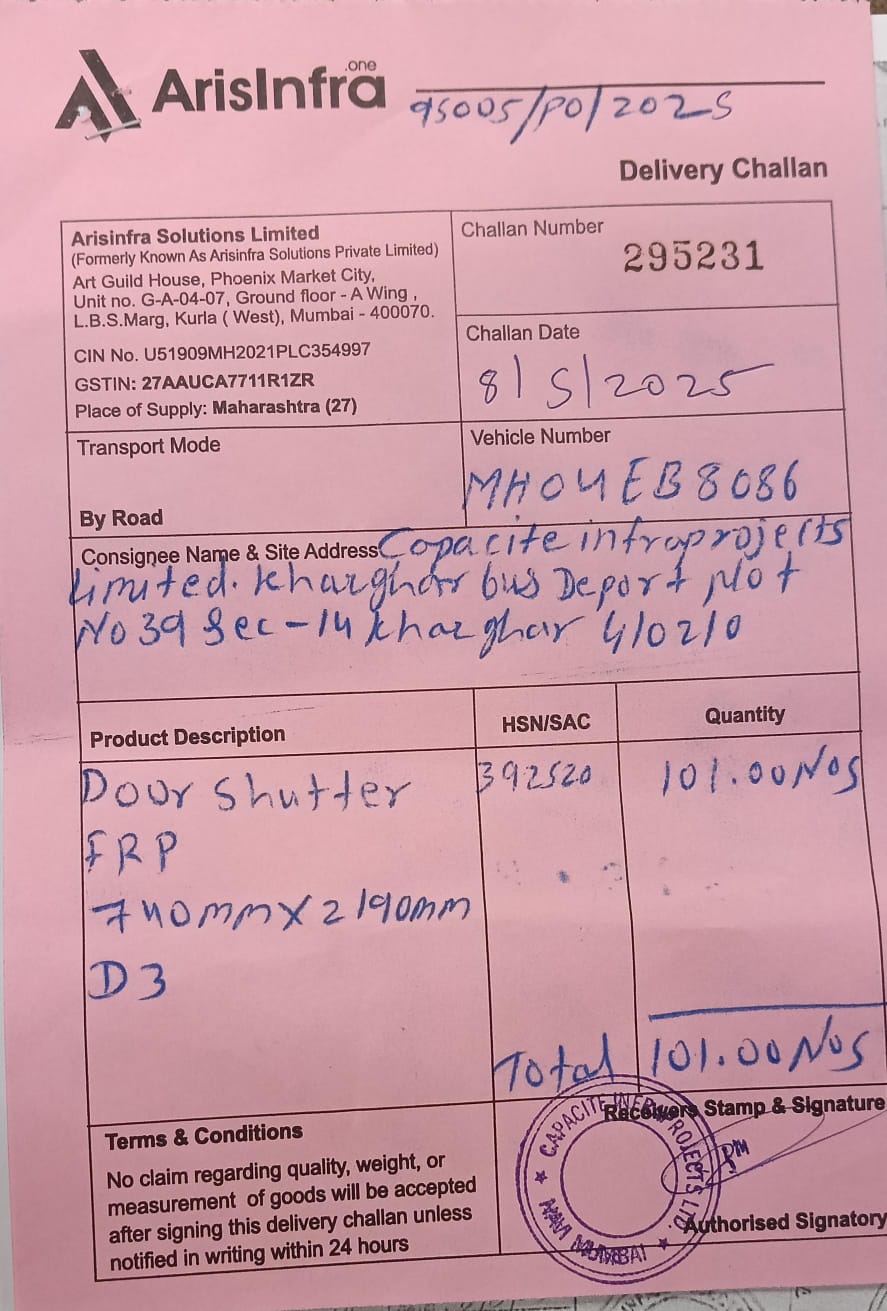 ArisInfra
.one
95005/PO/2025
Delivery Challan
Arisinfra Solutions Limited
(Formerly Known As Arisinfra Solutions Private Limited)
Art Guild House, Phoenix Market City,
Unit no. G-A-04-07, Ground floor - A Wing ,
L.B.S.Marg, Kurla ( West), Mumbai - 400070.
CIN No. U51909MH2021PLC354997
GSTIN: 27AAUCA7711R1ZR
Place of Supply: Maharashtra (27)
Challan Number
295231
Challan Date
8/5/2025
Transport Mode
By Road
Vehicle Number
MH04EB8086
Consignee Name & Site Address Copacite infraprojects
limited. Kharghar bus Deport Plot
No 39 Sec-14 Kharghar 410210
Product Description HSN/SAC Quantity
Door Shutter 392520 101.00 Nos
FRP
740mm X 2190mm
D3
Total 101.00 Nos
Terms & Conditions
No claim regarding quality, weight, or
measurement of goods will be accepted
after signing this delivery challan unless
notified in writing within 24 hours
Receivers Stamp & Signature
CAPACITE INFRAPROJECTS LTD.
NAVI MUMBAI
Authorised Signatory